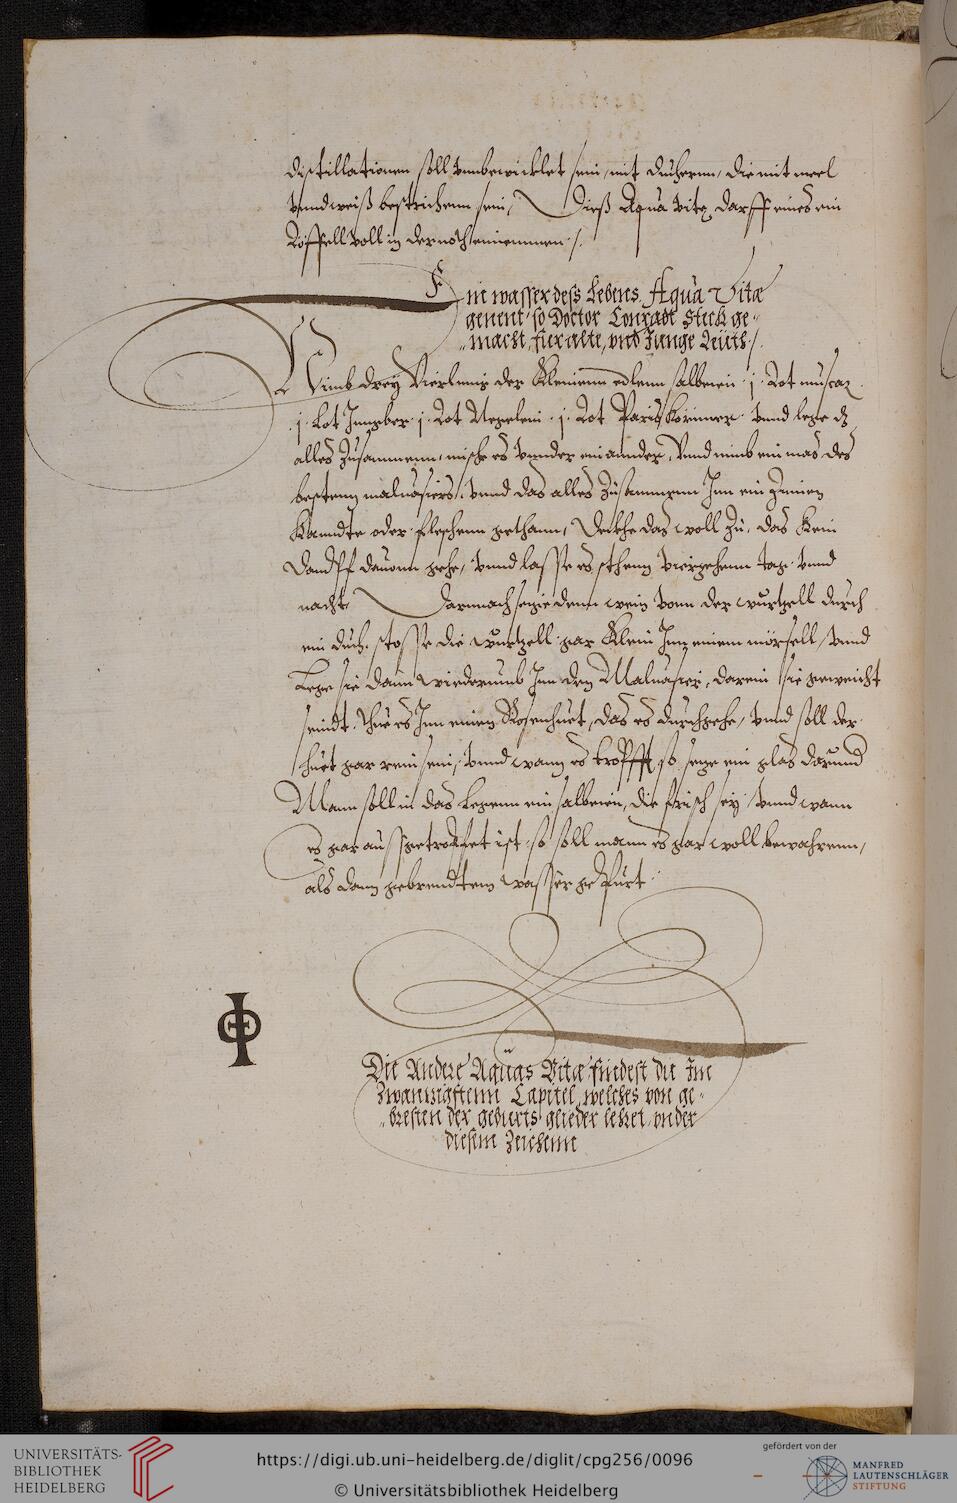 distillationen soll vmbewicklet sein, mit duchernn, die mit meel
vnnd weiß bestrichenn sein, Dieß Aqua vitę darff eines ein
Löffell voll in der noth einnemmen ./.
Ein wasser dess Lebens Aqua Vitæ
genent, so Doctor Conradt ge-
macht, fur alte, vnd Junge Leüth ./.
Nimb drey Vierling der Kleinenn edlenn salbeien . j . Lot muscaz
. j . Lot Jmgber . j . Lot Negelein . j . Lot Paris Körnner . vnnd lege dz
alles Zusammenn, mische es vnnder einannder, Vnnd nimb ein mas des
bestenn maluasiers, vnnd das alles Zusammenn Jnn ein Zinnen
Kanndte oder fleschenn gethann, Deckhe das woll Zu, das Kein
Dampff dauonn gehe, vnnd lasse es sthenn vierzehenn tag vnnd
nacht Darnnach seige denn wein vonn der wurtzell durch
ein duch, stosse die wurtzell gar Klein Jnn einem mörsell, vnnd
Lege sie dann wiederumb Jnn den Maluasier, darein sie geweicht
seindt, thue es Jnn einen Rosenhuet, das es durchgehe, vnnd soll der
huet gar rein sein, vnnd wann es tropfft, so sege ein glas darund
Mann soll in das Legenn ein salbeien, die frisch sey, vnnd wann
es gar aussgetropfet ist, so soll mann es gar woll bewahrenn,
als dann gebrendtem wasser gepürt
Die Andere Aquas Vitæ findest du Im
Zwanzigstenn Capitel, welches von ge-
bresten der geburts glieder lehret, vnder
diesem Zeichenn
UNIVERSITÄTS-
BIBLIOTHEK
HEIDELBERG
https://digi.ub.uni-heidelberg.de/diglit/cpg256/0096
© Universitätsbibliothek Heidelberg
gefördert von der
MANFRED
LAUTENSCHLÄGER
STIFTUNG